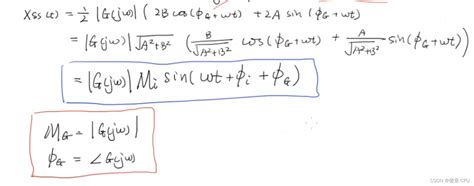 Xss(t) = 1/2 |G(jω)| ( 2B cos(ϕ_G + ωt) + 2A sin(ϕ_G + ωt)
= |G(jω)| √(A²+B²) ( B/√(A²+B²) cos(ϕ_G + ωt) + A/√(A²+B²) sin(ϕ_G + ωt))
= |G(jω)| M_i sin(ωt + ϕ_i + ϕ_G)
M_G = |G(jω)|
ϕ_G = ∠G(jω)